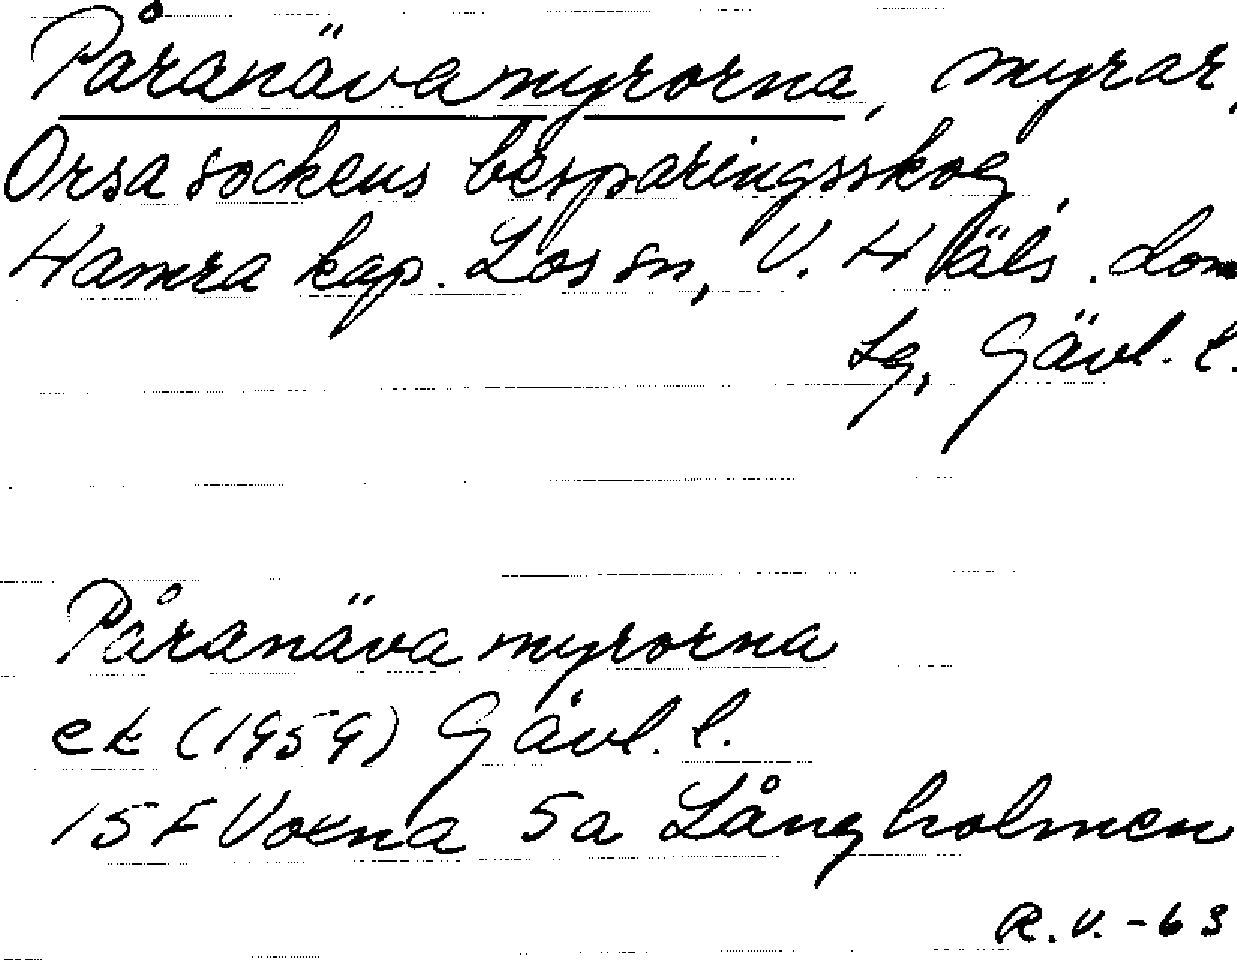 Påranävamyrorna, myrar,
Orsa sockens besparingsskog,
Hamra kap. Los sn, V. Häls. dom
sg, Gävl. l.
Påranäva myrorna
ek (1959) Gävl. l.
15 F Voxna 5a Långholmen
R.V. -63